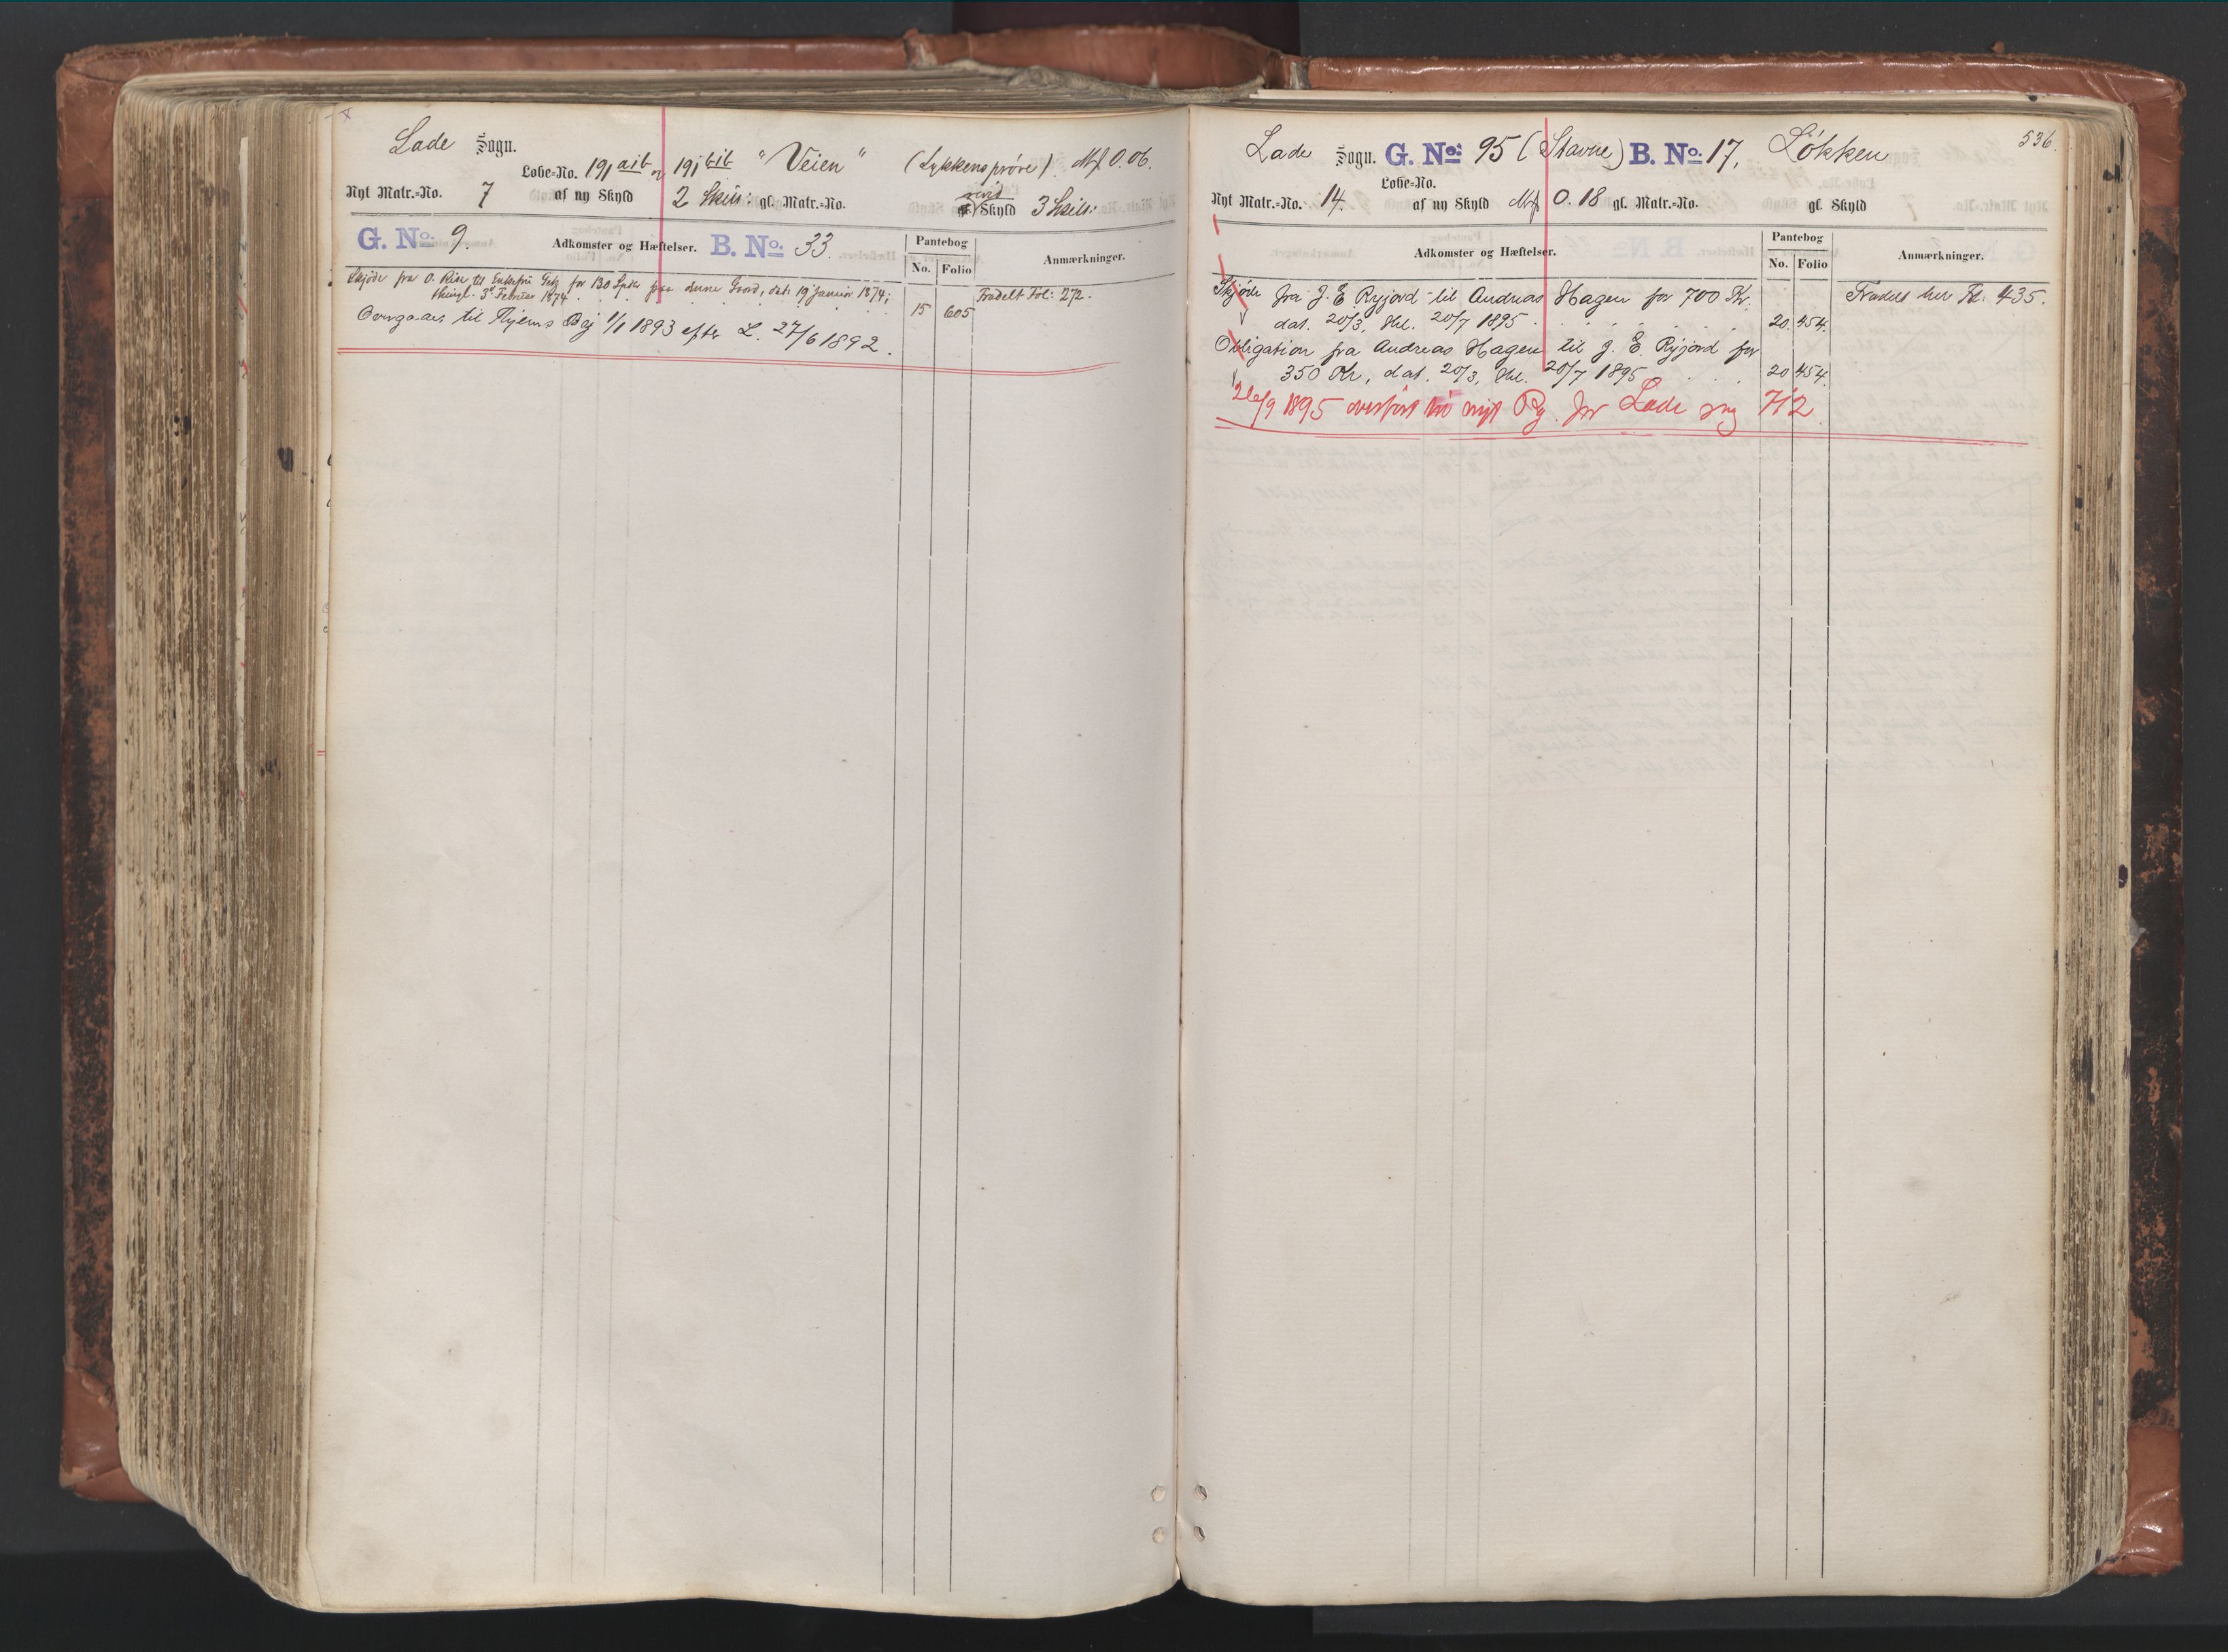 Lade Sogn.
Løbe-No. 191 aib og 191 bib "Veien" (Lykkensprøve). Mk 0.06.
Nyt Matr.-No. 7 af ny Skyld 2 Skill: gl. Matr.-No. Skyld 3 Skill:
G. No. 9. Adkomster og Hæftelser. B. No. 33.
Pantebog
No. Folio
Anmærkninger.
Skjøde fra O. Rise til Enkefru Getz for 130 Spdlr paa denne Gaard, dat: 19 Januar 1874;
thingl. 3 Februar 1874. 15 605
Fradelt Fol: 272.
Overgaaet til Byens Reg 1/1 1893 efter L. 27/6 1892.
536.
Lade Sogn. G. No. 95 (Stavne) B. No. 17, Løkken
Løbe-No.
Nyt Matr.-No. 14. af ny Skyld Mk 0.18 gl. Matr.-No. gl. Skyld
Adkomster og Hæftelser.
Pantebog
No. Folio
Anmærkninger.
Skjøde fra J. E. Ryjord til Andreas Hagen for 700 Kr.
dat. 20/3, thl. 20/7 1895. 20. 454.
Fradelt her Fol: 435.
Obligation fra Andreas Hagen til J. E. Ryjord for
350 Kr, dat. 20/3, thl. 20/7 1895 20 454.
26/9 1895 overført til nyt Rg. for Lade sog 712